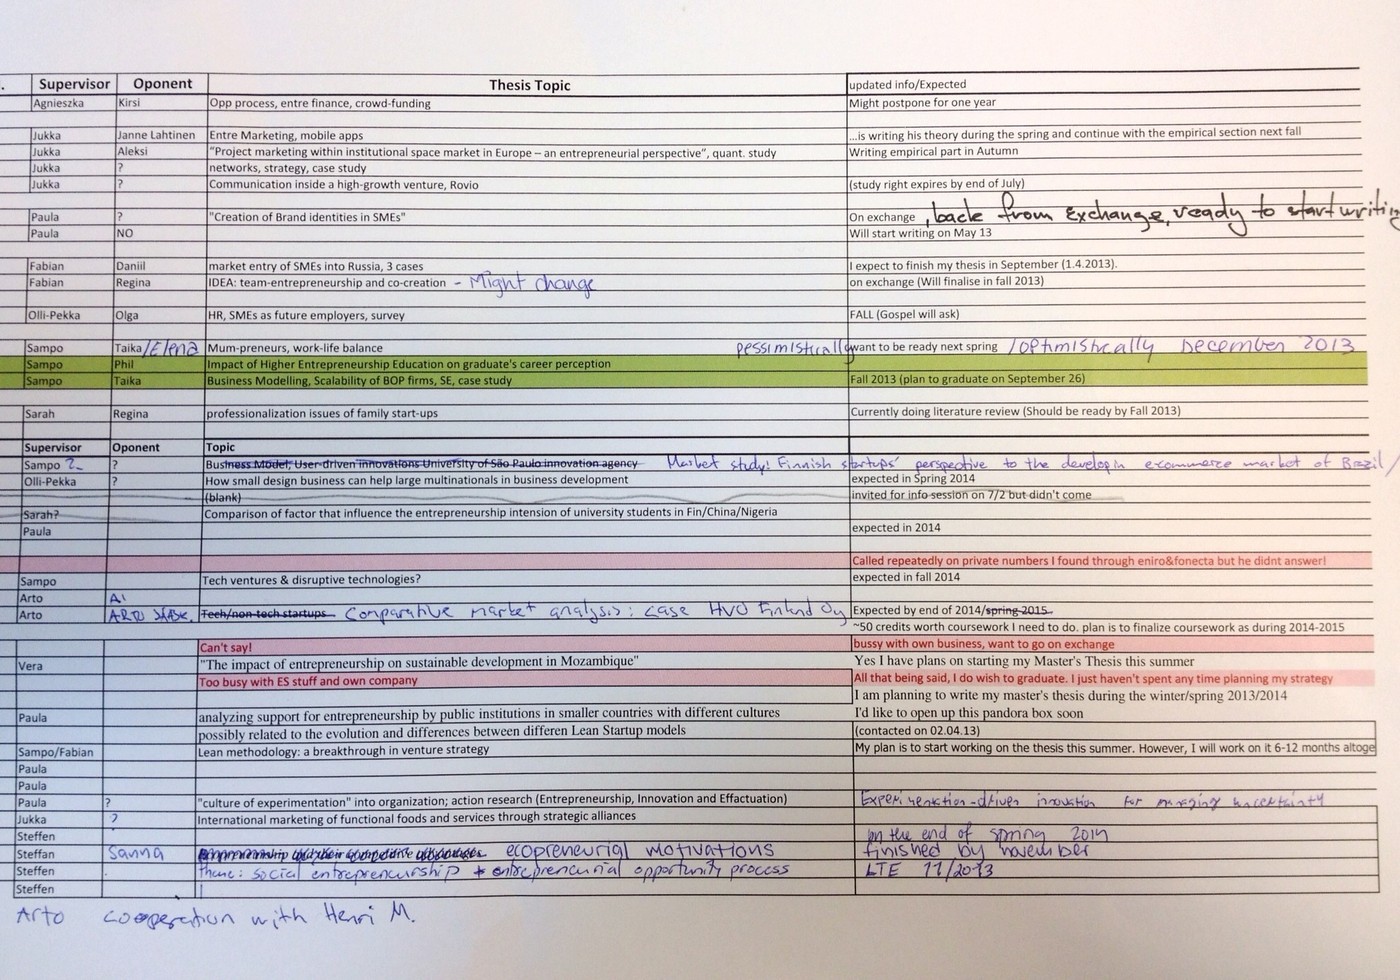 . Supervisor Oponent Thesis Topic updated info/Expected
Agnieszka Kirsi Opp process, entre finance, crowd-funding Might postpone for one year
Jukka Janne Lahtinen Entre Marketing, mobile apps ...is writing his theory during the spring and continue with the empirical section next fall
Jukka Aleksi "Project marketing within institutional space market in Europe – an entrepreneurial perspective", quant. study Writing empirical part in Autumn
Jukka ? networks, strategy, case study
Jukka ? Communication inside a high-growth venture, Rovio (study right expires by end of July)
Paula ? "Creation of Brand identities in SMEs" On exchange , back from exchange, ready to start writing
Paula NO Will start writing on May 13
Fabian Daniil market entry of SMEs into Russia, 3 cases I expect to finish my thesis in September (1.4.2013).
Fabian Regina IDEA: team-entrepreneurship and co-creation - Might change on exchange (Will finalise in fall 2013)
Olli-Pekka Olga HR, SMEs as future employers, survey FALL (Gospel will ask)
Sampo Taika/Elena Mum-preneurs, work-life balance pessimistically want to be ready next spring /optimistically December 2013
Sampo Phil Impact of Higher Entrepreneurship Education on graduate's career perception
Sampo Taika Business Modelling, Scalability of BOP firms, SE, case study Fall 2013 (plan to graduate on September 26)
Sarah Regina professionalization issues of family start-ups Currently doing literature review (Should be ready by Fall 2013)
Supervisor Oponent Topic
Sampo ? ? Business Model, User-driven innovations University of São Paulo innovation agency Market study: Finnish startups' perspective to the developin ecommerce market of Brazil/
Olli-Pekka ? How small design business can help large multinationals in business development expected in Spring 2014
(blank) invited for info session on 7/2 but didn't come
Sarah? Comparison of factor that influence the entrepreneurship intension of university students in Fin/China/Nigeria
Paula expected in 2014
Called repeatedly on private numbers I found through eniro&fonecta but he didnt answer!
Sampo Tech ventures & disruptive technologies? expected in fall 2014
Arto
Arto Tech/non-tech startups Comparative market analysis: case HVO Finland Oy Expected by end of 2014/spring 2015
~50 credits worth coursework I need to do. plan is to finalize coursework as during 2014-2015
Can't say! bussy with own business, want to go on exchange
Vera "The impact of entrepreneurship on sustainable development in Mozambique" Yes I have plans on starting my Master's Thesis this summer
Too busy with ES stuff and own company All that being said, I do wish to graduate. I just haven't spent any time planning my strategy
I am planning to write my master's thesis during the winter/spring 2013/2014
Paula analyzing support for entrepreneurship by public institutions in smaller countries with different cultures I'd like to open up this pandora box soon
possibly related to the evolution and differences between differen Lean Startup models (contacted on 02.04.13)
Sampo/Fabian Lean methodology: a breakthrough in venture strategy My plan is to start working on the thesis this summer. However, I will work on it 6-12 months altoge
Paula
Paula
Paula ? "culture of experimentation" into organization; action research (Entrepreneurship, Innovation and Effactuation) Experimentation-driven innovation for managing uncertainty
Jukka ? International marketing of functional foods and services through strategic alliances
Steffen by the end of spring 2014
Steffan Sanna ecopreneurial motivations finished by november
Steffen theme: social entrepreneurship + entrepreneurial opportunity process LTE 11/2013
Steffen
Arto cooperation with Henri M.